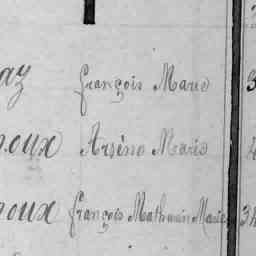 az François Marie 3
noux Arsène Marie 4
noux François Mathurin Marie 34